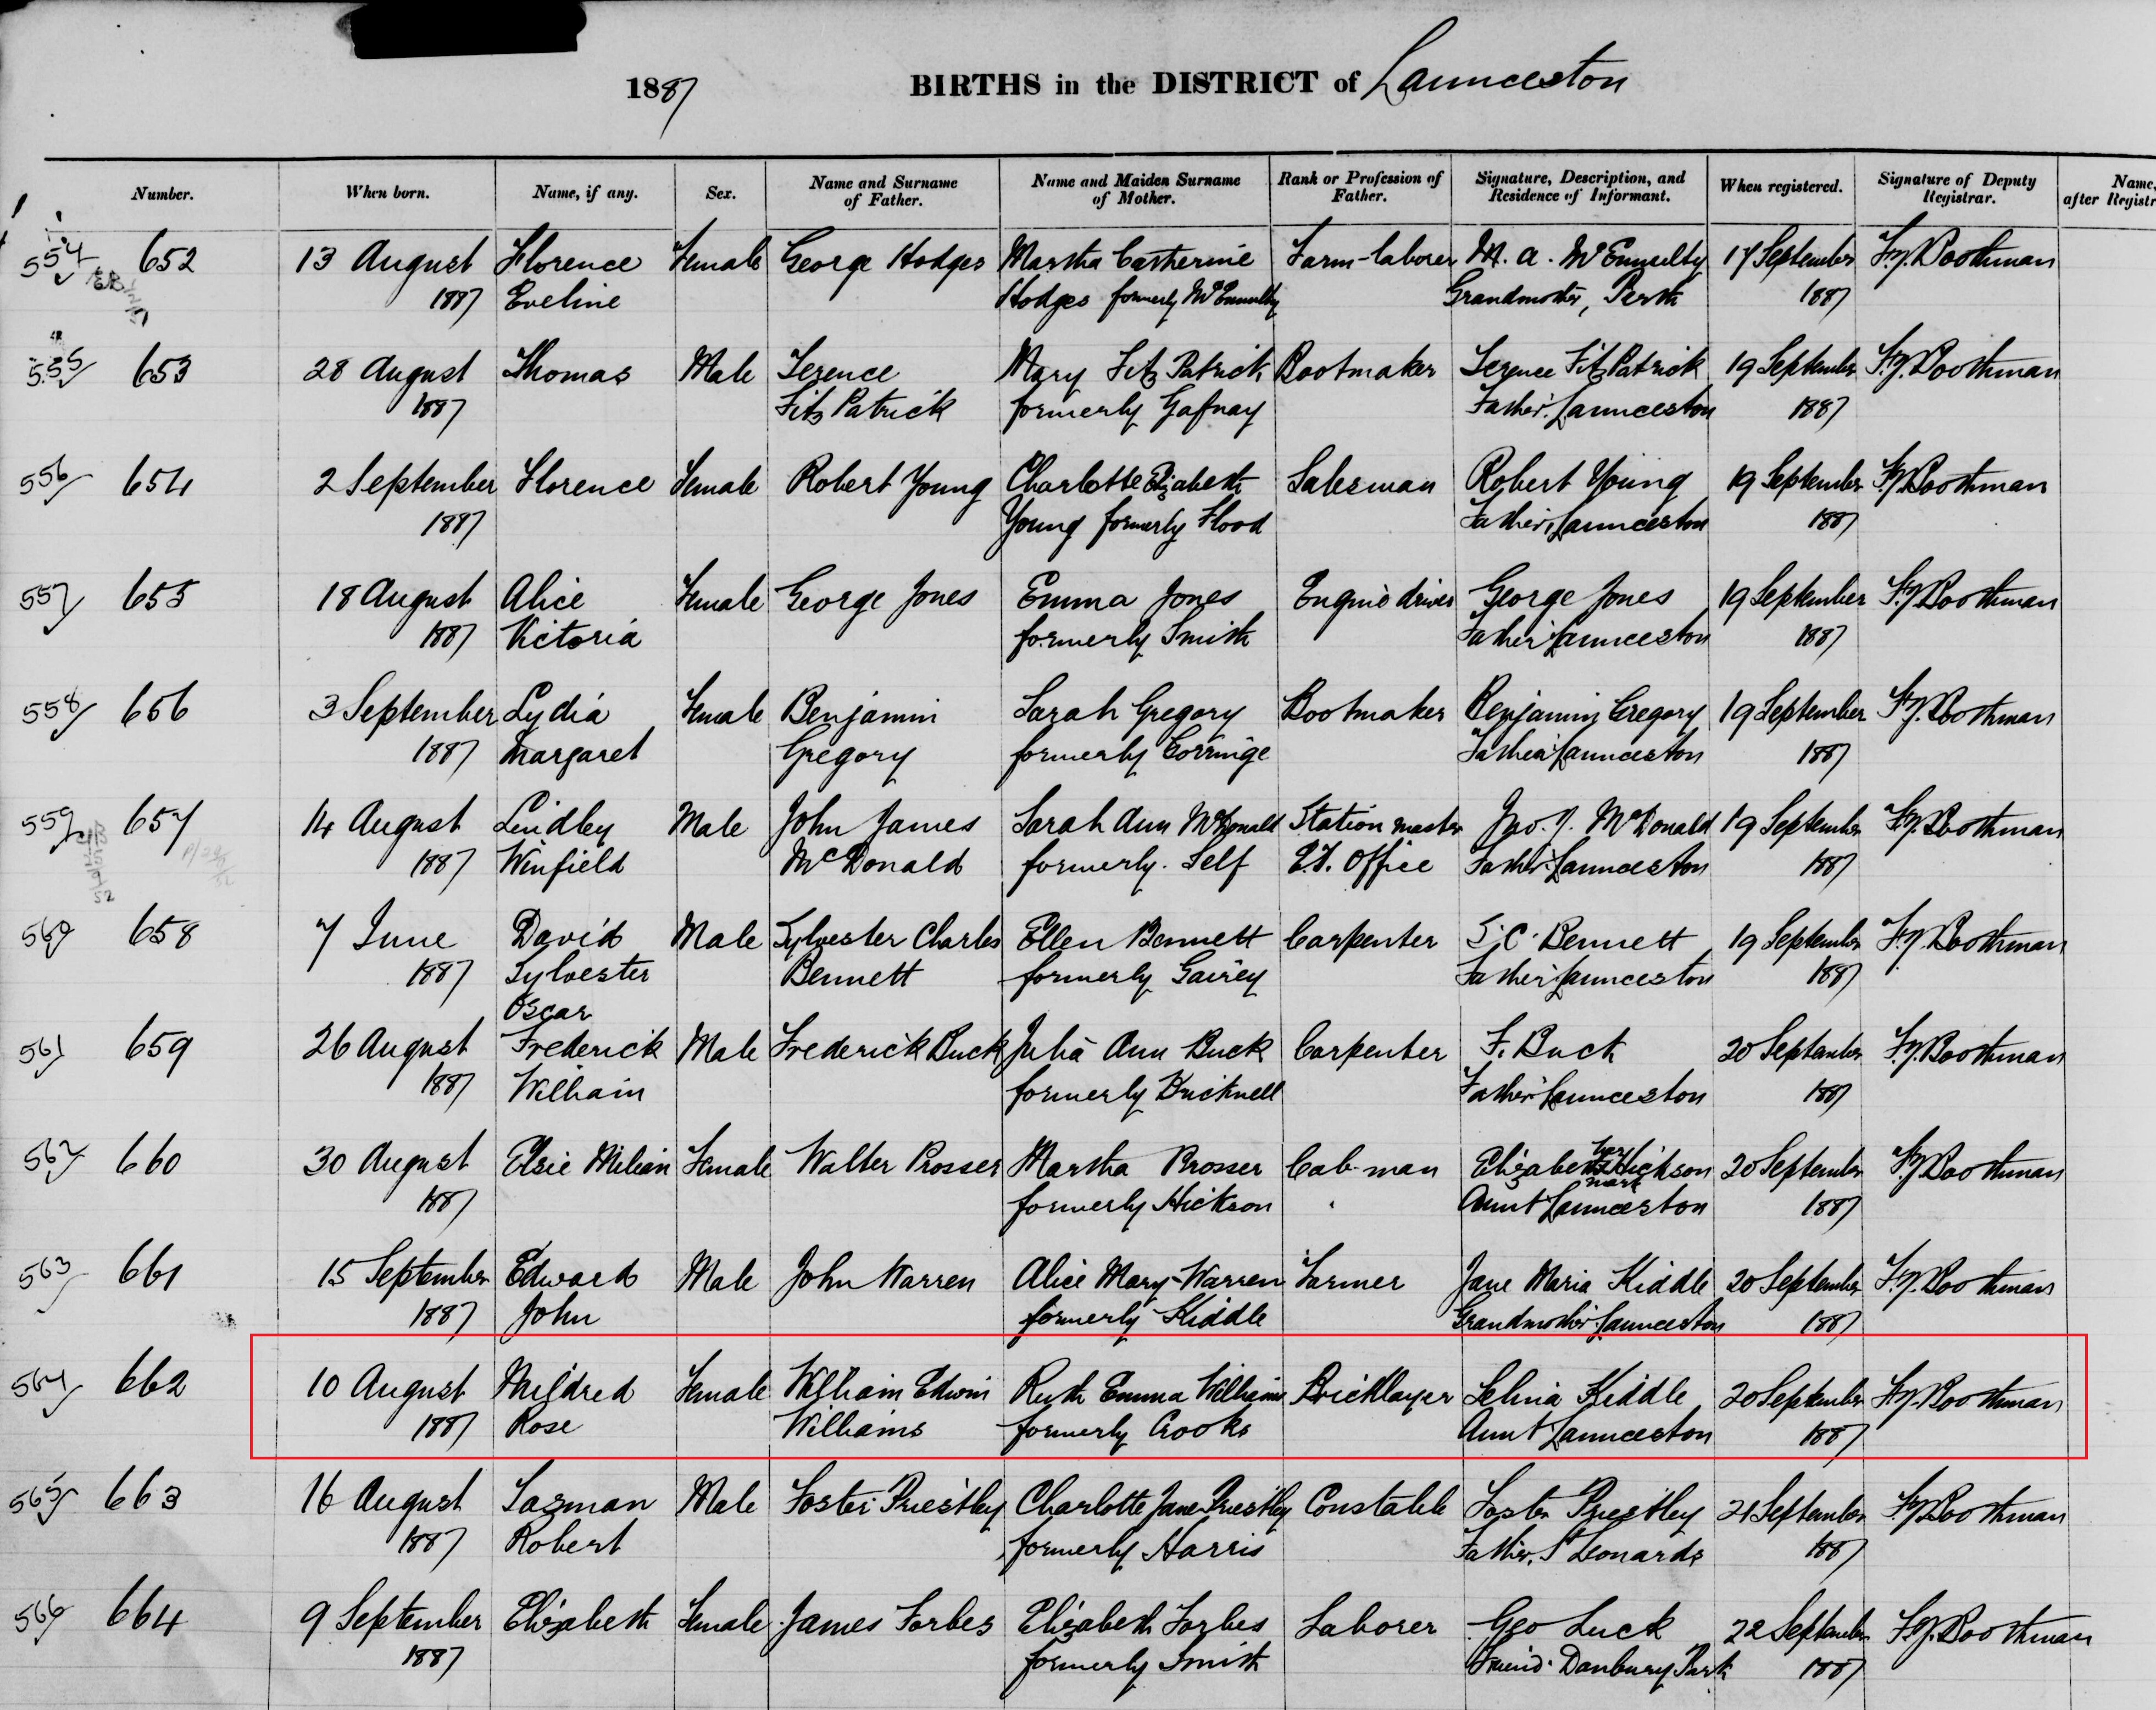 1887 BIRTHS in the DISTRICT of Launceston
Number. When born. Name, if any. Sex. Name and Surname of Father. Name and Maiden Surname of Mother. Rank or Profession of Father. Signature, Description, and Residence of Informant. When registered. Signature of Deputy Registrar. Name, after Registr
554 652 13 August Florence Female George Hodges Martha Catherine Farm-laborer M. A. McEnnulty 17 September F.J. Boothman
1887 Eveline Hodges formerly McEnnulty Grandmother, Perth 1887
555 653 28 August Thomas Male Terence Mary Fitz Patrick Bootmaker Terence Fitz Patrick 19 September F.J. Boothman
1887 Fitz Patrick formerly Gafnay Father. Launceston 1887
556 654 2 September Florence Female Robert Young Charlotte Elizabeth Salesman Robert Young 19 September F.J. Boothman
1887 Young formerly Flood Father, Launceston 1887
557 655 18 August Alice Female George Jones Emma Jones Engine driver George Jones 19 September F.J. Boothman
1887 Victoria formerly Smith Father Launceston 1887
558 656 3 September Lydia Female Benjamin Sarah Gregory Bootmaker Benjamin Gregory 19 September F.J. Boothman
1887 Margaret Gregory formerly Gorringe Father Launceston 1887
559 657 14 August Lindley Male John James Sarah Ann McDonald Station master Jno. J. McDonald 19 September F.J. Boothman
1887 Winfield McDonald formerly. Self E.T. Office Father. Launceston 1887
560 658 7 June David Male Sylvester Charles Ellen Bennett Carpenter S. C. Bennett 19 September F.J. Boothman
1887 Sylvester Bennett formerly Gairey Father Launceston 1887
Oscar
561 659 26 August Frederick Male Frederick Buck Julia Ann Buck Carpenter F. Buck 20 September F.J. Boothman
1887 William formerly Bucknell Father Launceston 1887
562 660 30 August Elsie Milian Female Walter Prosser Martha Prosser Cab-man Elizabeth her x mark Hickson 20 September F.J. Boothman
1887 formerly Hickson Aunt Launceston 1887
563 661 15 September Edward Male John Warren Alice Mary Warren Farmer Jane Maria Kiddle 20 September F.J. Boothman
1887 John formerly Kiddle Grandmother Launceston 1887
564 662 10 August Mildred Female William Edwin Ruth Emma Williams Bricklayer Selina Kiddle 20 September F.J. Boothman
1887 Rose Williams formerly Crooks Aunt Launceston 1887
565 663 16 August Tasman Male Foster Priestley Charlotte Jane Priestley Constable Foster Priestley 21 September F.J. Boothman
1887 Robert formerly Harris Father. St Leonards 1887
566 664 9 September Elizabeth Female James Forbes Elizabeth Forbes Laborer Geo Luck 22 September F.J. Boothman
1887 formerly Smith Friend. Danbury Park 1887